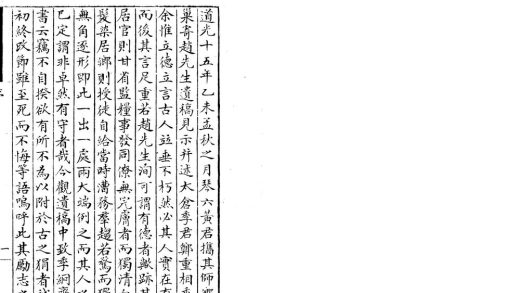 道光十五年乙未孟秋之月琴六黃君攜其師
巢寄趙先生遺稿見示并述太倉季君鄭重相
余惟立德立言古人竝垂不朽然必其人實在有
而後其言足重若趙先生洵可謂有德者歟跡其
居官則甘省監糧事發同僚無完膚者而獨清
髮染居鄉則授徒自給當時漕務羣趨若鶩而獨
無角逐形即此一出一處兩大端例之而其人
已定謂非卓然有守者哉今觀遺稿中致季綱
書云竊不自揆欲有所不為以附於古之狷者
初終改節雖至死而不悔等語嗚呼此其勵志
一